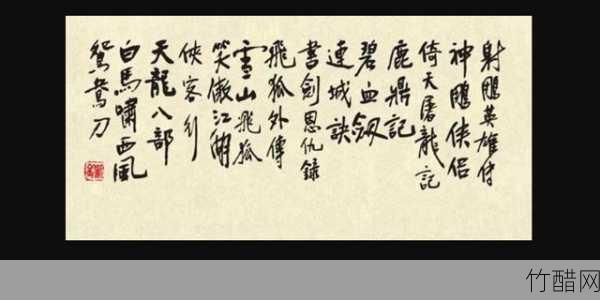 射鵰英雄傳
神鵰俠侶
倚天屠龍記
鹿鼎記
碧血劍
連城訣
書劍恩仇錄
飛狐外傳
雪山飛狐
笑傲江湖
俠客行
天龍八部
白馬嘯西風
鴛鴦刀
竹醋网